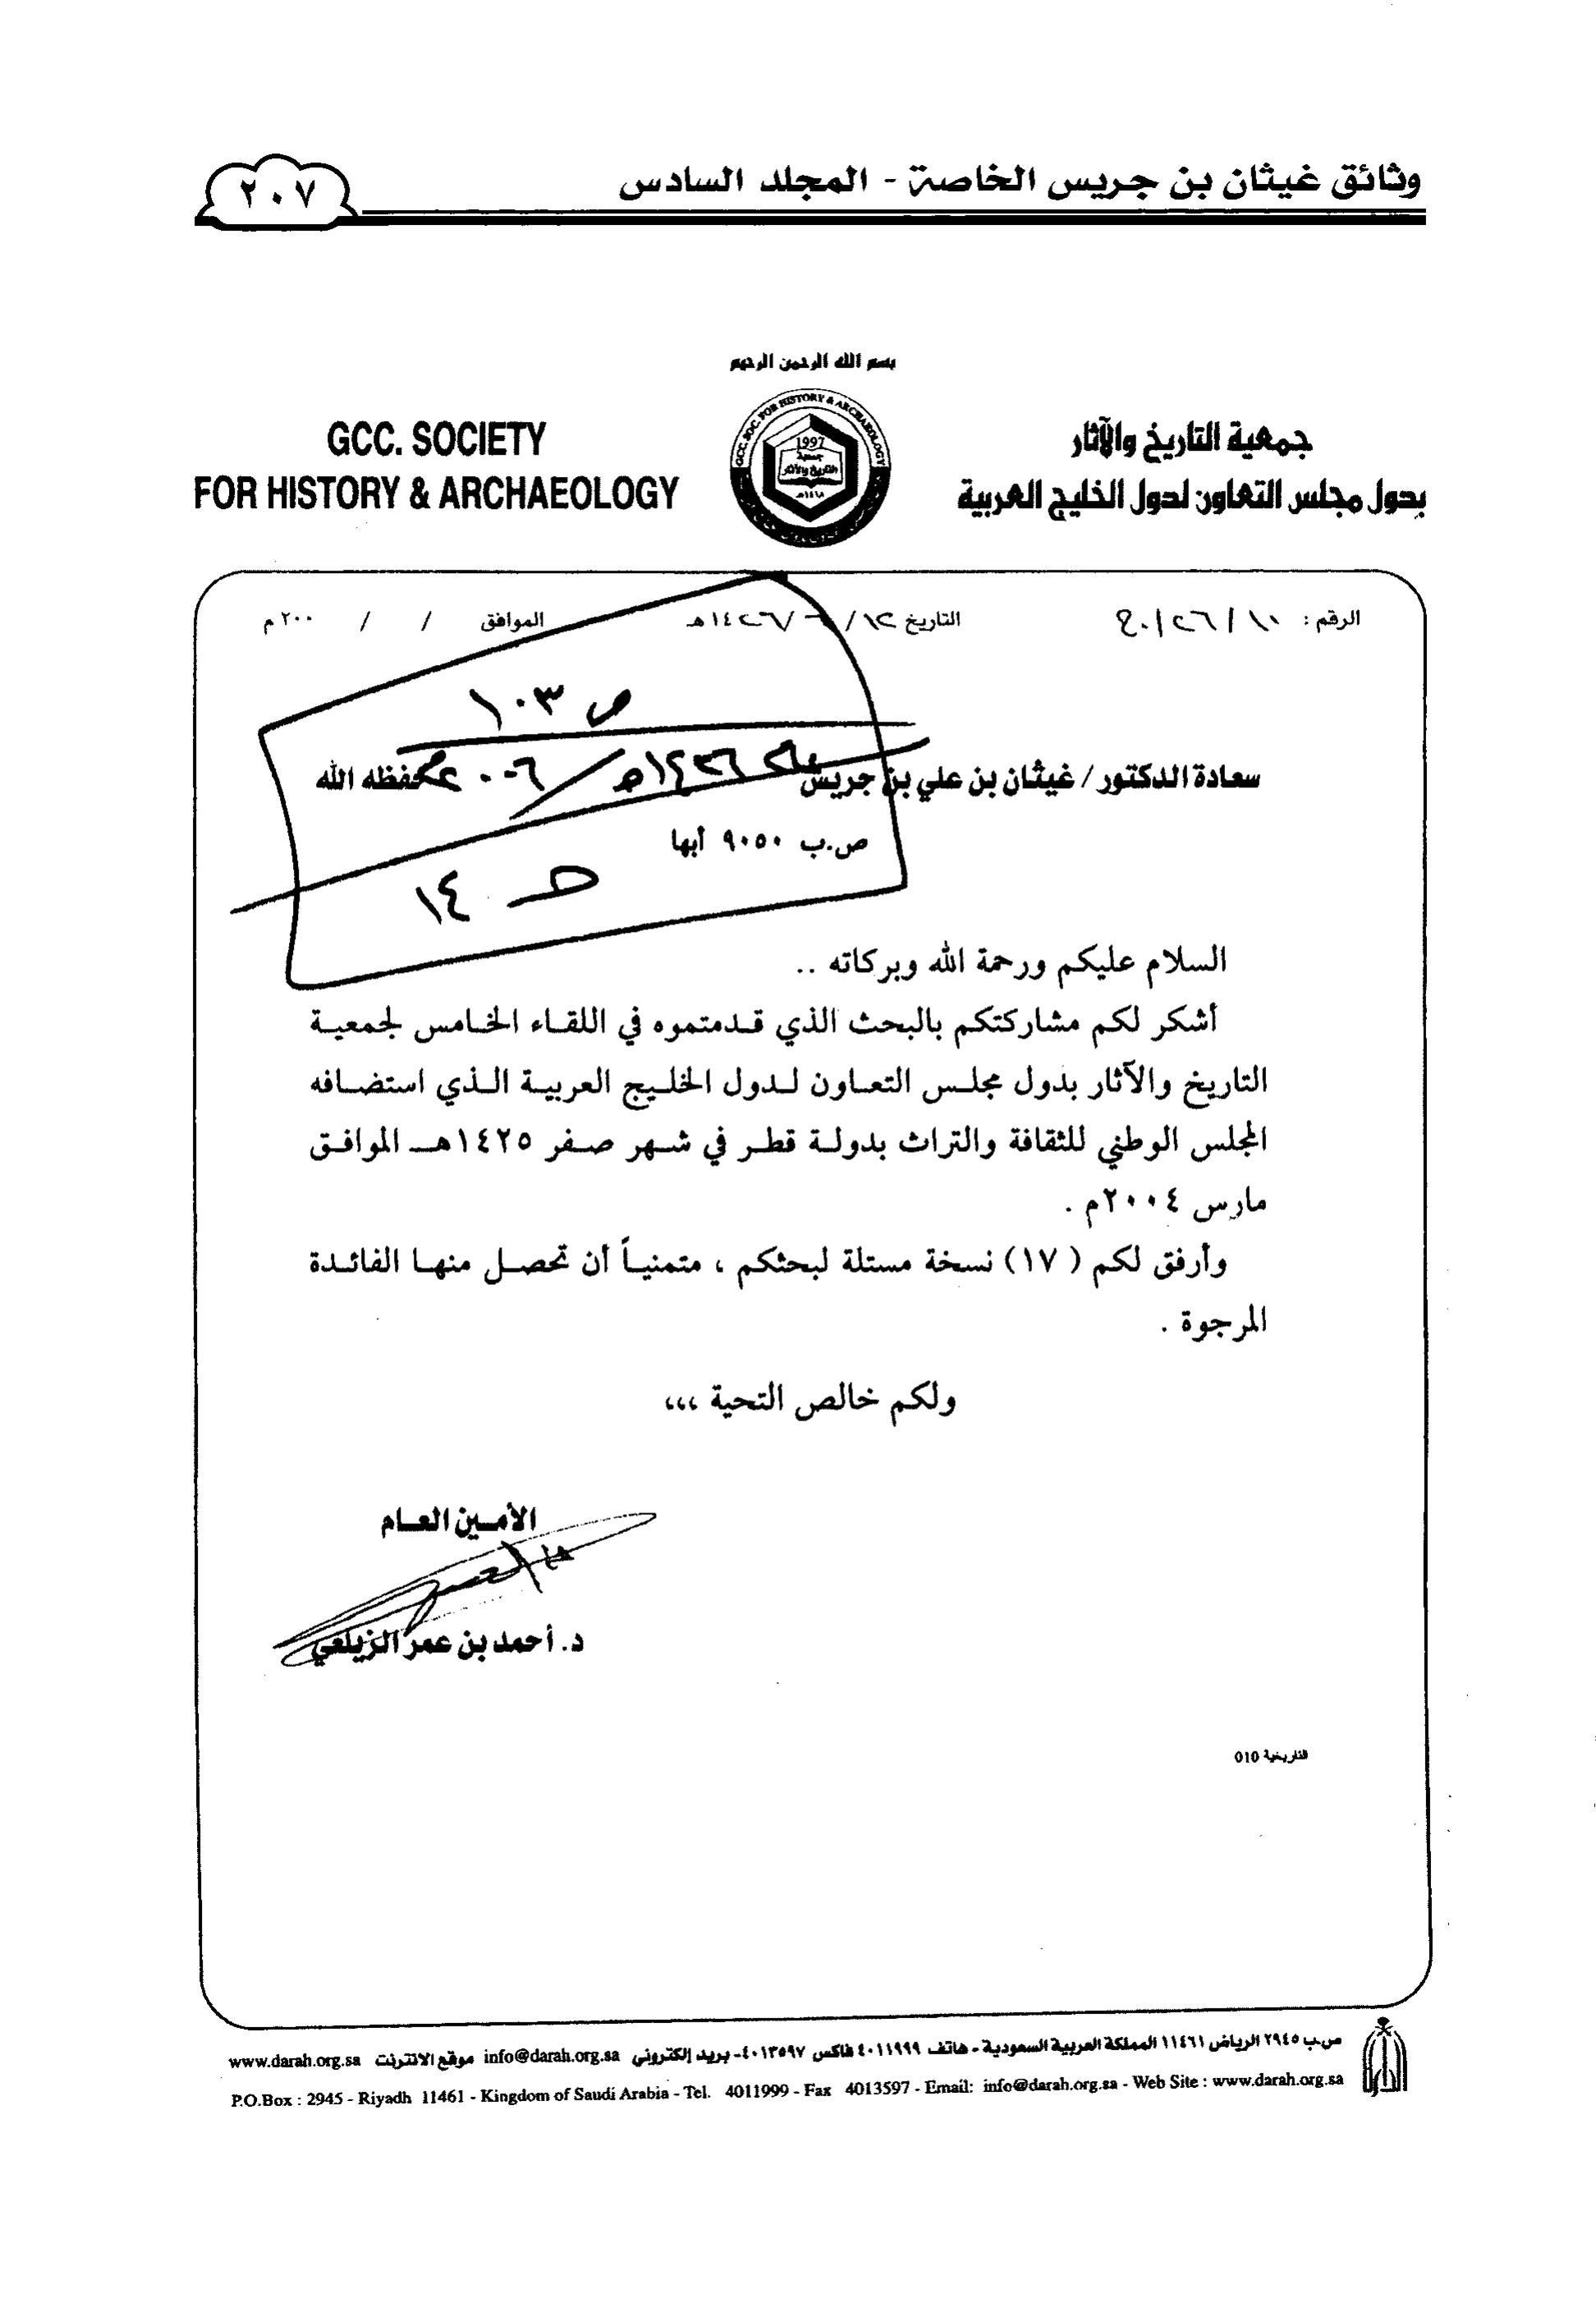 وثائق غيثان بن جريس الخاصة - المجلد السادس
٢٠٧
بسم الله الرحمن الرحيم
GCC. SOCIETY
FOR HISTORY & ARCHAEOLOGY
GCC. SOC. FOR HISTORY & ARCHAEOLOGY
1997
جمعية
التاريخ والآثار
١٤١٨هـ
جمعية التاريخ والآثار
بدول مجلس التعاون لدول الخليج العربية
الرقم :
التاريخ ١٢/ /١٤٢٦هـ
الموافق / / ٢٠٠م
ص ١٠٣
سعادة الدكتور / غيثان بن علي بن جريس حفظه الله
١٤٢٦هـ / ٢٠٠٦
ص.ب ٩٠٥٠ أبها
حـ ١٤
السلام عليكم ورحمة الله وبركاته ..
أشكر لكم مشاركتكم بالبحث الذي قدمتموه في اللقاء الخامس لجمعية
التاريخ والآثار بدول مجلس التعاون لدول الخليج العربية الذي استضافه
المجلس الوطني للثقافة والتراث بدولة قطر في شهر صفر ١٤٢٥هـ الموافق
مارس ٢٠٠٤م .
وأرفق لكم (١٧) نسخة مستلة لبحثكم ، متمنياً أن تحصل منها الفائدة
المرجوة .
ولكم خالص التحية ،،،
الأمين العام
د. أحمد بن عمر الزيلعي
التاريخية 010
ص.ب ٢٩٤٥ الرياض ١١٤٦١ المملكة العربية السعودية - هاتف ٤٠١١٩٩٩ فاكس ٤٠١٣٥٩٧- بريد إلكتروني info@darah.org.sa موقع الانترنت www.darah.org.sa
P.O.Box : 2945 - Riyadh 11461 - Kingdom of Saudi Arabia - Tel. 4011999 - Fax 4013597 - Email: info@darah.org.sa - Web Site : www.darah.org.sa